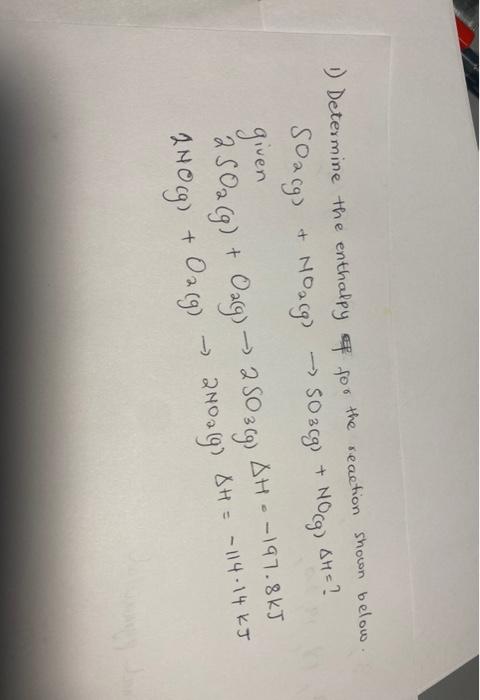 1) Determine the enthalpy for the reaction shown below.
SO2(g) + NO2(g) → SO3(g) + NO(g) ΔH=?
given
2SO2(g) + O2(g) → 2SO3(g) ΔH = -197.8KJ
2NO(g) + O2(g) → 2NO2(g) ΔH = -114.14KJ